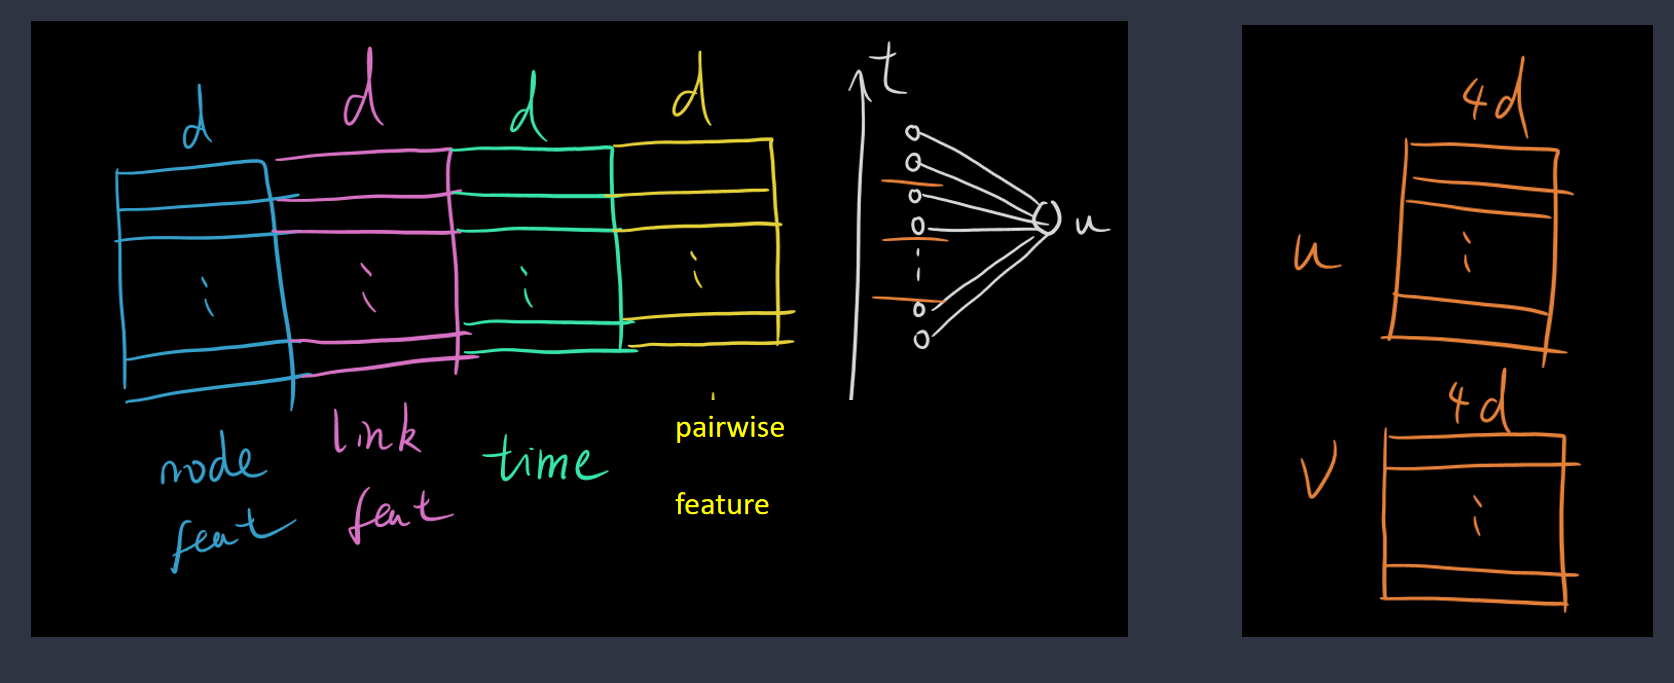 d
d
d
d
t
u
node
feat
link
feat
time
pairwise
feature
4d
u
4d
v